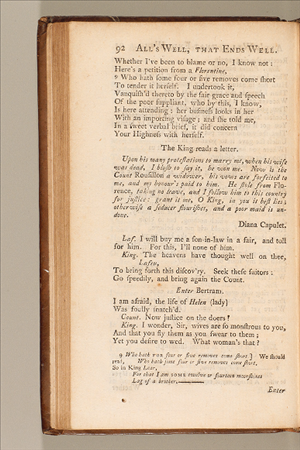 92 ALL'S WELL, THAT ENDS WELL.
Whether I've been to blame or no, I know not:
Here's a petition from a Florentine,
9 Who hath some four or five removes come short
To tender it herself. I undertook it,
Vanquish'd thereto by the fair grace and speech
Of the poor suppliant, who by this, I know,
Is here attending: her business looks in her
With an importing visage; and she told me,
In a sweet verbal brief, it did concern
Your Highness with herself.
The King reads a letter.
Upon his many protestations to marry me, when his wife
was dead, I blush to say it, he won me. Now is the
Count Rousillon a widower, his vows are forfeited to
me, and my honour's paid to him. He stole from Flo-
rence, taking no leave, and I follow him to this country
for justice: grant it me, O King, in you it best lies;
otherwise a seducer flourishes, and a poor maid is un-
done.
Diana Capulet.
Laf. I will buy me a son-in-law in a fair, and toll
for him. For this, I'll none of him.
King. The heavens have thought well on thee,
Lafeu,
To bring forth this discov'ry. Seek these suitors:
Go speedily, and bring again the Count.
Enter Bertram.
I am afraid, the life of Helen (lady)
Was foully snatch'd.
Count. Now justice on the doers!
King. I wonder, Sir, wives are so monstrous to you,
And that you fly them as you swear to them;
Yet you desire to wed. What woman's that?
9 Who hath some four or five removes come short] We should
read, Who hath some four or five removes come short.
So in King Lear,
For that I am SOME twelve or fourteen moonshines
Lag of a brother,
Enter